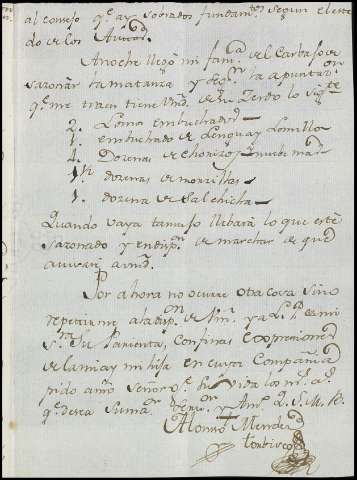 al consejo qe. ay sobrados fundamtos. segun el esta
do de los Autos.
Anoche llegó mi fama. del Carbajo de
sazonar la matanza y segn. la apuntazon.
qe. me traen tiene Vmd. de su Zerdo lo sigte.
2. Lomos embuchados
1. embuchado de Lengua y Lomillo
4. Dozenas de chorizos
1½ dozenas de morzillas
1. dozena de Salchicha
Quando vaya llibará lo que esté
sazonado y en dispn. de marchar de que
avisaré a vmd.
Por ahora no ocurre otra cosa sino
repetirme a la dispn. de Vm. y a L. P. de mi
Sra. Su Parienta, con finas expresiones
de la mia y mi hija en cuya Compañia
pido a nro. Señor ge. Su Vida los ms. as.
qe. desea Su mar. Servor. y Amo. Q. S. M. B.
Alonso Mendez